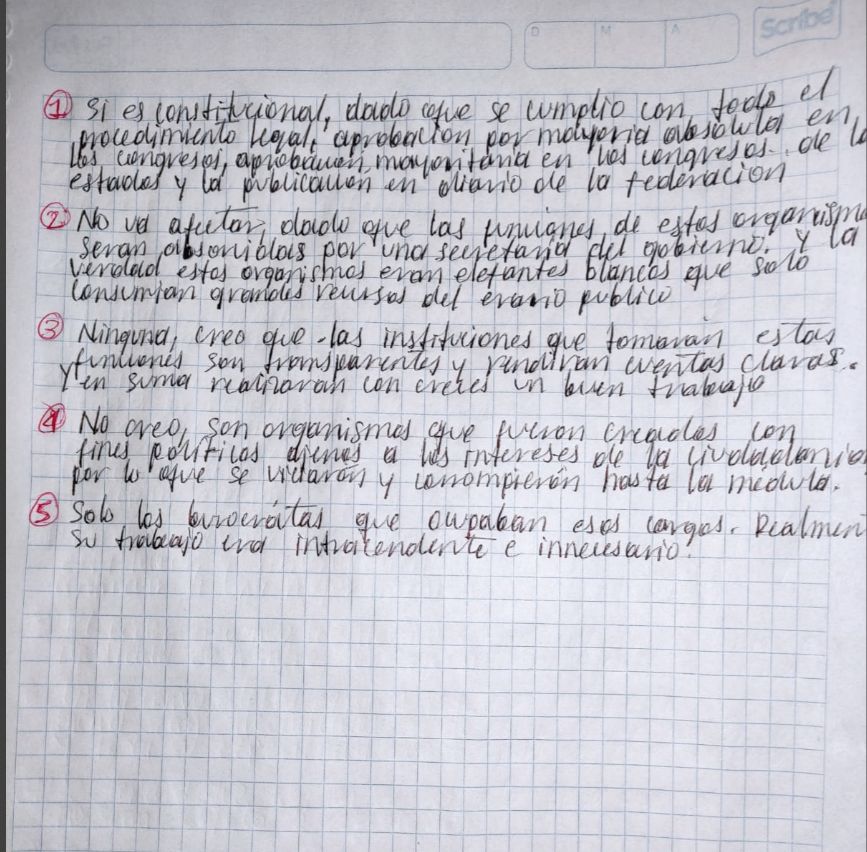 Scribe
D M A
① Si es constitucional, dado que se cumplio con todo el
procedimiento legal, aprobación por mayoria absoluta en
los congresos, aprobación mayoritaria en los congresos de
estados y la publicación en diario de la federacion
② No va afectar, dado que las funciones de estos organismo
seran absoribidas por una secretaria del gobierno. Y la
verdad estos organismos eran elefantes blancos que solo
consumian grandes recursos del erario publico
③ Ninguna, creo que las instituciones que tomaran estas
funciones son transparentes y rendiran cuentas claras.
Y en suma realizaran con creces un buen trabajo
④ No creo, son organismos que fueron creados con
fines politicos ajenos a los intereses de la ciudadania
por lo que se viciaron y corrompieron hasta la medula.
⑤ Solo los burocratas que ocupaban esos cargos. Realmen
su trabajo era intratendente e innecesario.